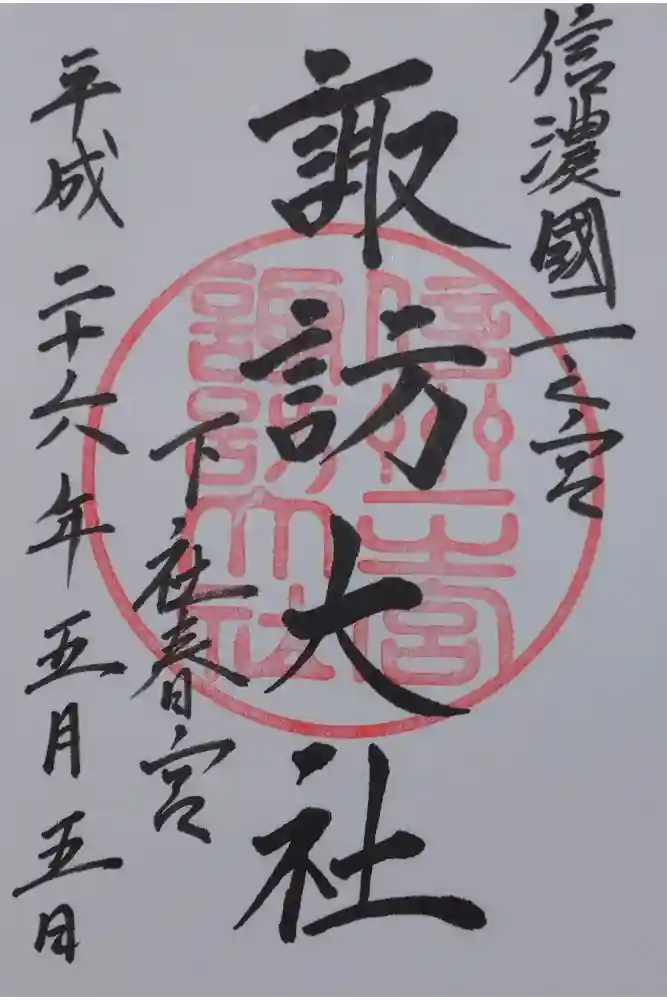 信濃國一之宮
諏訪大社
下社春宮
平成二十六年五月五日